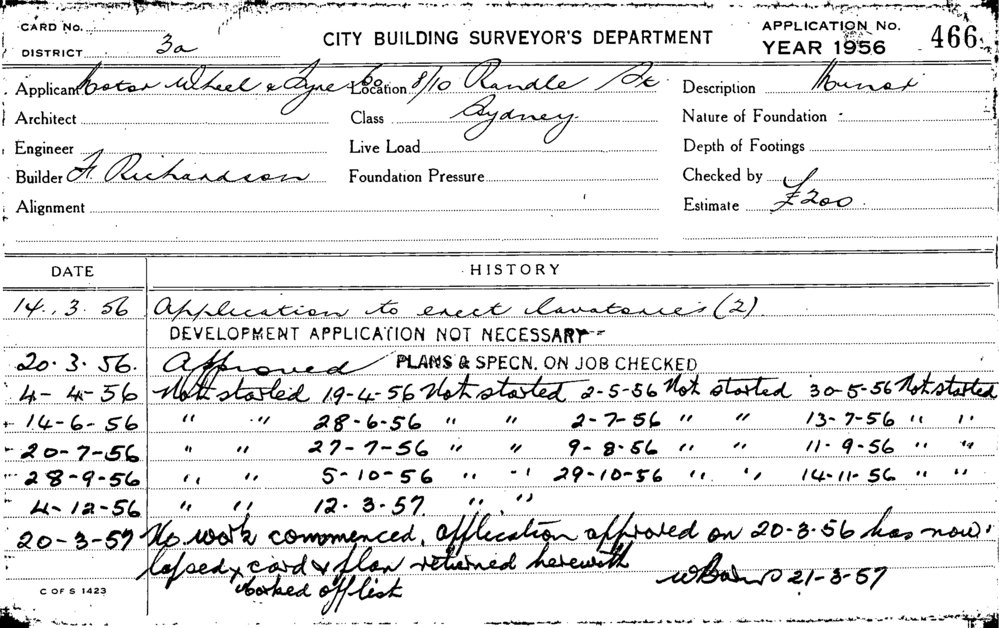 CARD No.
DISTRICT 3a
CITY BUILDING SURVEYOR'S DEPARTMENT
APPLICATION No. 466
YEAR 1956
Applicant Motor Wheel & Tyre Co Location 8/10 Randle St Description Minor
Architect Class Sydney Nature of Foundation
Engineer Live Load Depth of Footings
Builder F. Richardson Foundation Pressure Checked by
Alignment Estimate £200
DATE HISTORY
14.3.56 Application to erect lavatories (2)
DEVELOPMENT APPLICATION NOT NECESSARY
20.3.56. Approved PLANS & SPECN. ON JOB CHECKED
4-4-56 Not started 19-4-56 Not started 2-5-56 Not started 30-5-56 Not started
14-6-56 " " 28-6-56 " " 2-7-56 " " 13-7-56 " "
20-7-56 " " 27-7-56 " " 9-8-56 " " 11-9-56 " "
28-9-56 " " 5-10-56 " " 29-10-56 " " 14-11-56 " "
4-12-56 " " 12.3.57. " "
20-3-57 No work commenced, application approved on 20-3-56 has now
lapsed, card & plan returned herewith
21-3-57
off list
C OF S 1423